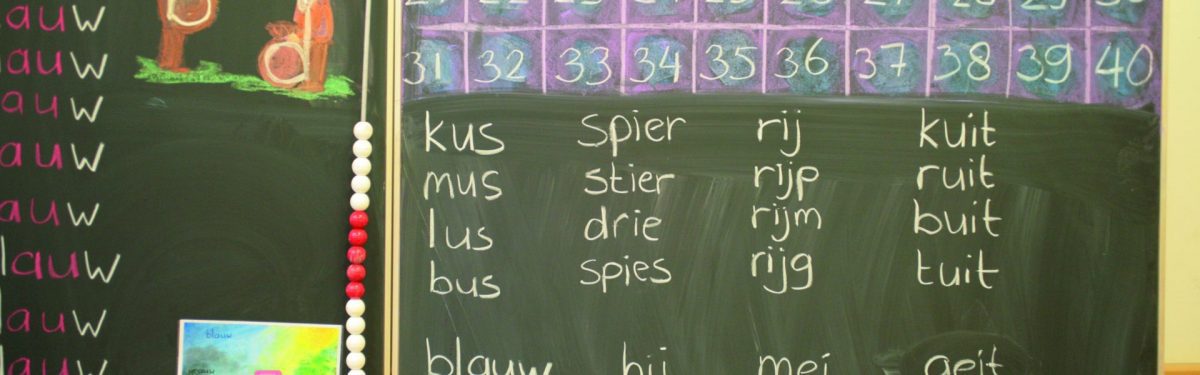 auw
auw
auw
auw
auw
lauw
auw
auw
blauw
31 32 33 34 35 36 37 38 39 40
kus spier rij kuit
mus stier rijp ruit
lus drie rijm buit
bus spies rijg tuit
blauw bij mei geit